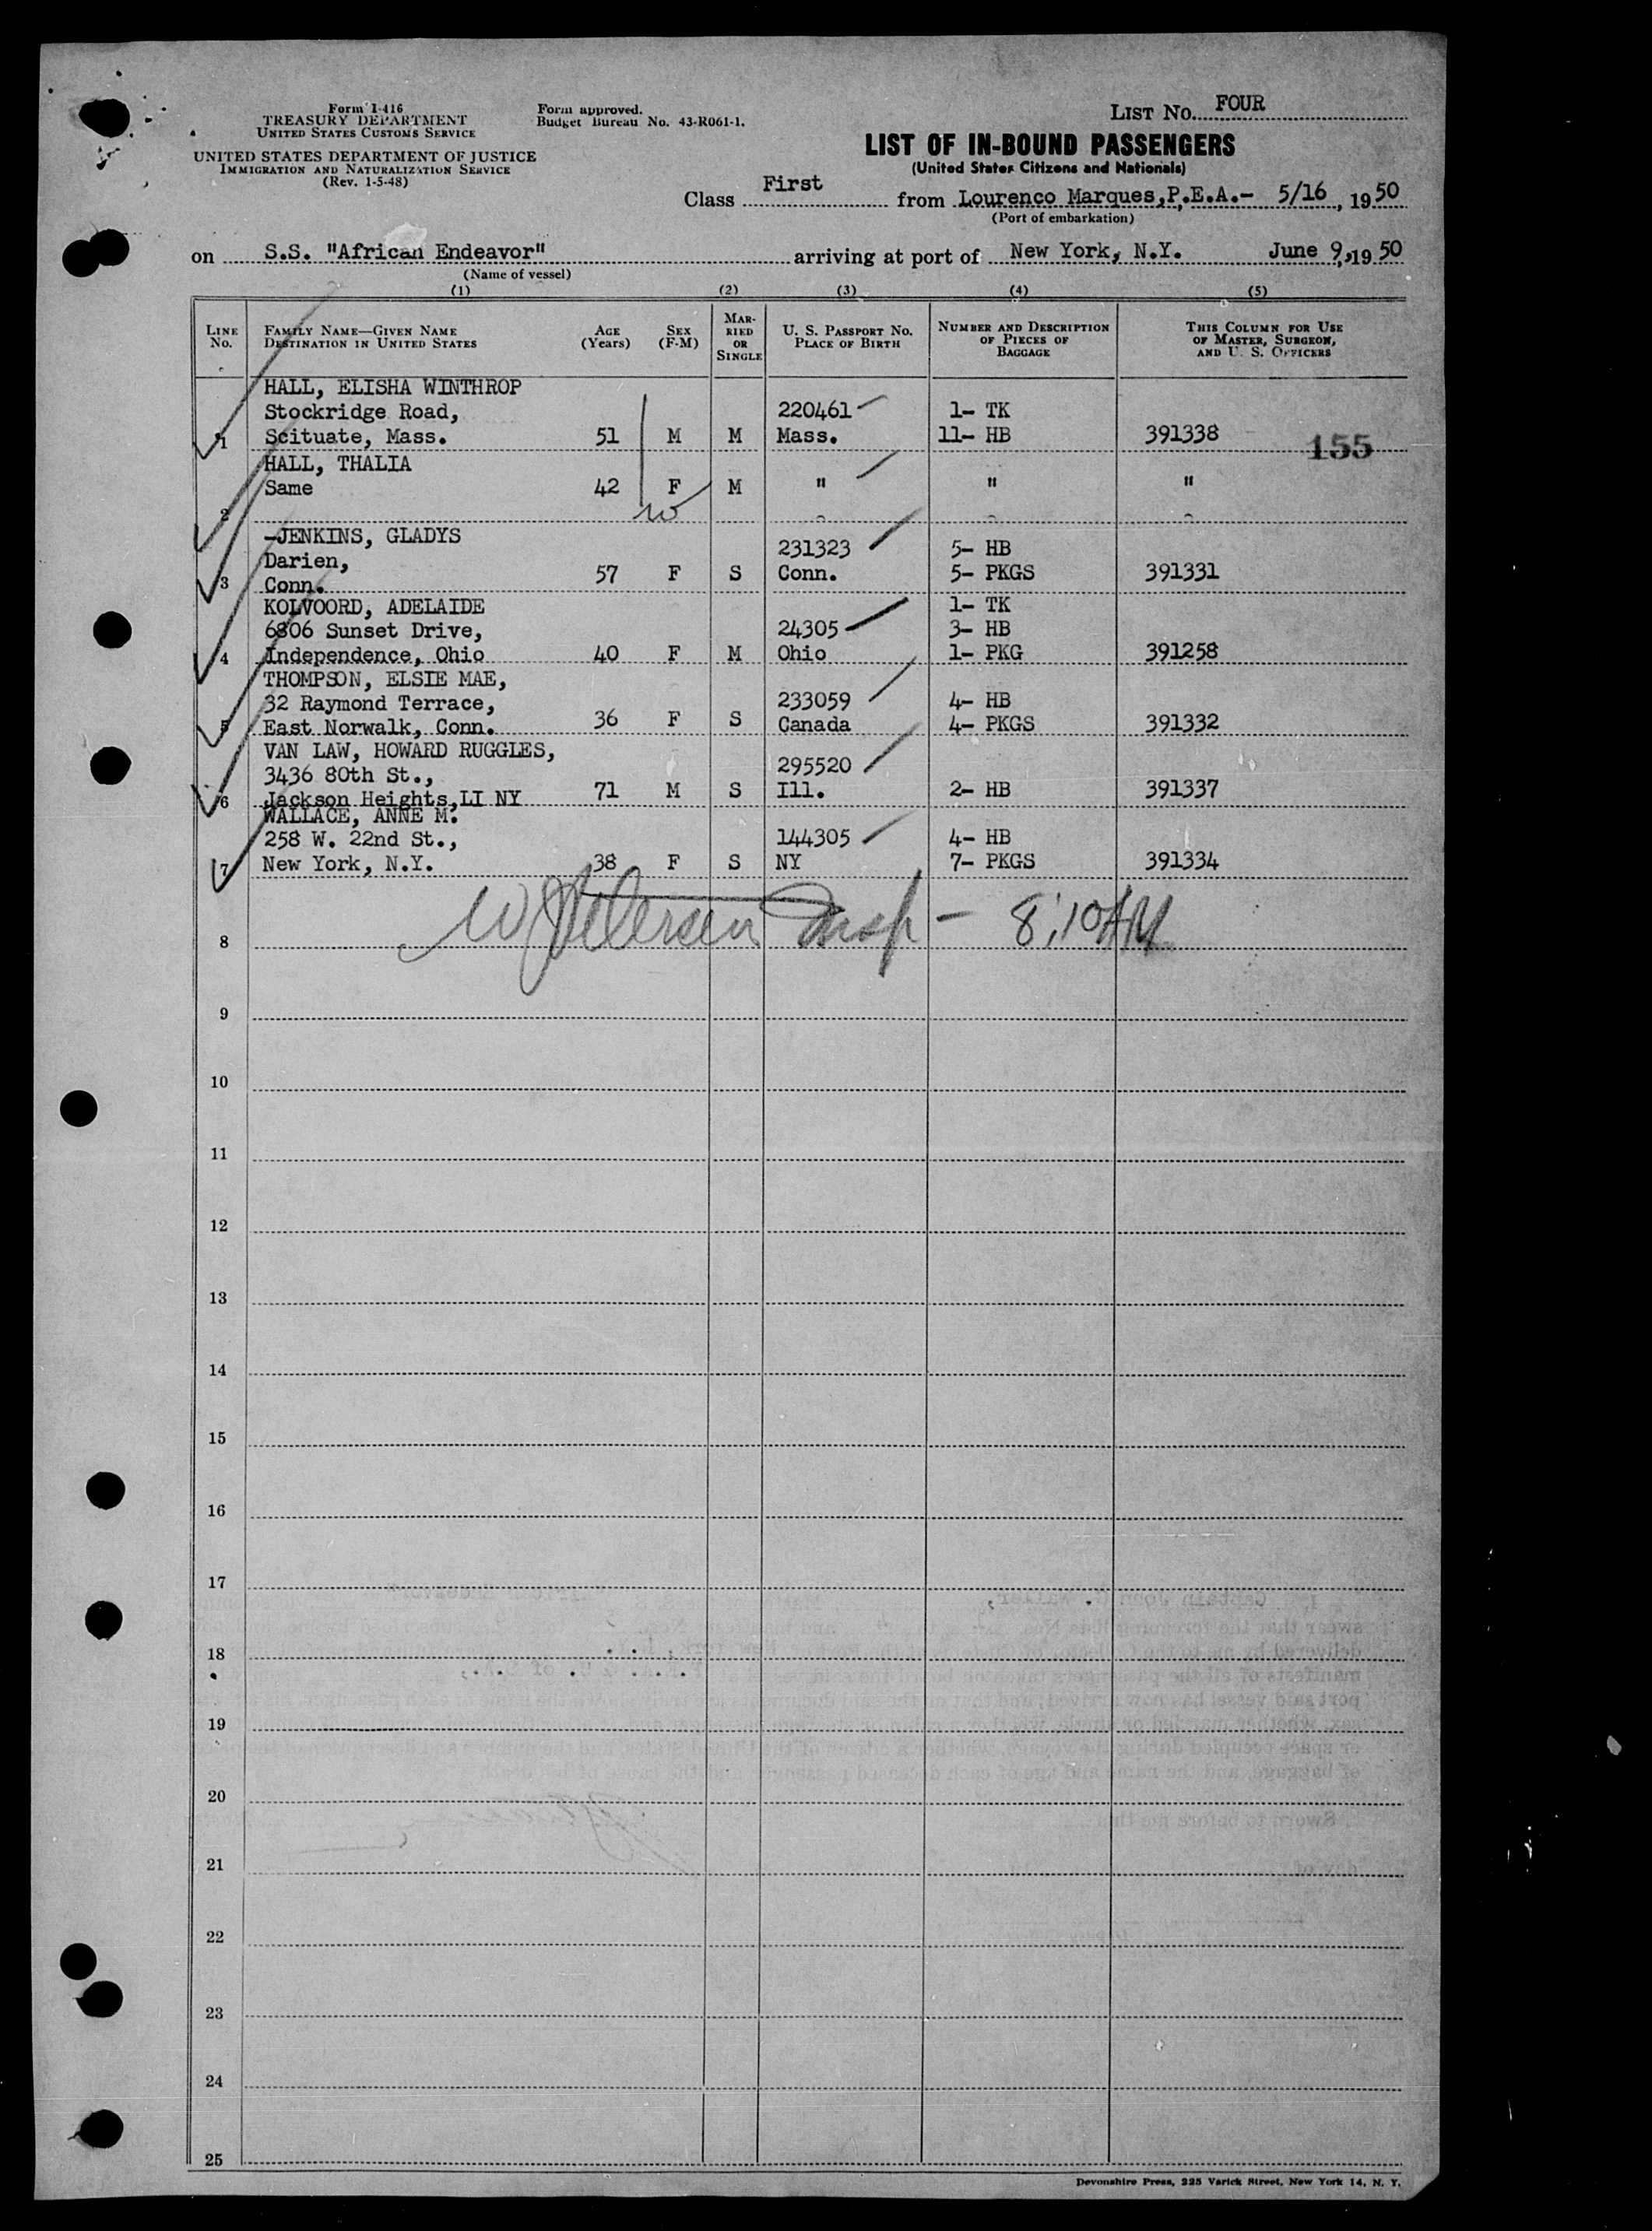 Form I-416
TREASURY DEPARTMENT
UNITED STATES CUSTOMS SERVICE
UNITED STATES DEPARTMENT OF JUSTICE
IMMIGRATION AND NATURALIZATION SERVICE
(Rev. 1-5-48)
Form approved.
Budget Bureau No. 43-R061-1.
LIST NO. FOUR
LIST OF IN-BOUND PASSENGERS
(United States Citizens and Nationals)
Class First from Lourenco Marques,P.E.A.- 5/16, 1950
(Port of embarkation)
on S.S. "African Endeavor" arriving at port of New York, N.Y. June 9, 1950
(Name of vessel)
(1) (2) (3) (4) (5)
LINE NO.
FAMILY NAME—GIVEN NAME
DESTINATION IN UNITED STATES
AGE (Years)
SEX (F-M)
MARRIED OR SINGLE
U. S. PASSPORT NO.
PLACE OF BIRTH
NUMBER AND DESCRIPTION OF PIECES OF BAGGAGE
THIS COLUMN FOR USE OF MASTER, SURGEON, AND U. S. OFFICERS
HALL, ELISHA WINTHROP
Stockridge Road, 220461 1- TK
1 Scituate, Mass. 51 M M Mass. 11- HB 391338 155
HALL, THALIA
Same 42 F M " " "
2
-JENKINS, GLADYS
Darien, 231323 5- HB
3 Conn. 57 F S Conn. 5- PKGS 391331
KOLVOORD, ADELAIDE 1- TK
6806 Sunset Drive, 24305 3- HB
4 Independence, Ohio 40 F M Ohio 1- PKG 391258
THOMPSON, ELSIE MAE,
32 Raymond Terrace, 233059 4- HB
5 East Norwalk, Conn. 36 F S Canada 4- PKGS 391332
VAN LAW, HOWARD RUGGLES,
3436 80th St., 295520
6 Jackson Heights,LI NY 71 M S Ill. 2- HB 391337
WALLACE, ANNE M.
258 W. 22nd St., 144305 4- HB
7 New York, N.Y. 38 F S NY 7- PKGS 391334
W Petersen Insp - 8:10 AM
8
9
10
11
12
13
14
15
16
17
18
19
20
21
22
23
24
25
Devonshire Press, 225 Varick Street, New York 14, N. Y.